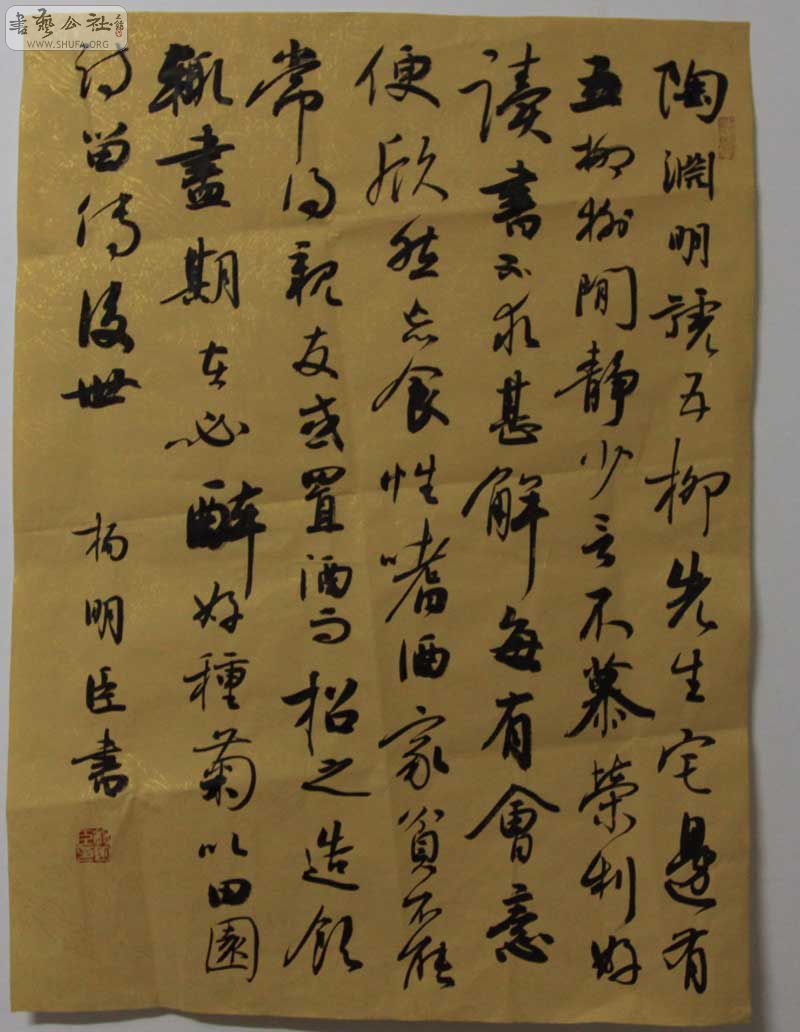 書藝公社
WWW.SHUFA.ORG
陶淵明號五柳先生宅邊有
五柳樹閒靜少言不慕榮利好
讀書不求甚解每有會意
便欣然忘食性嗜酒家貧不能
常得親友或置酒而招之造飲
輒盡期在必醉好種菊以田園
詩留傳後世 楊明臣書